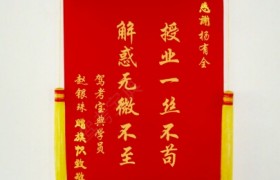 感謝 杨有全
授业一丝不苟
解惑无微不至
驾考宝典学员
赵银珠